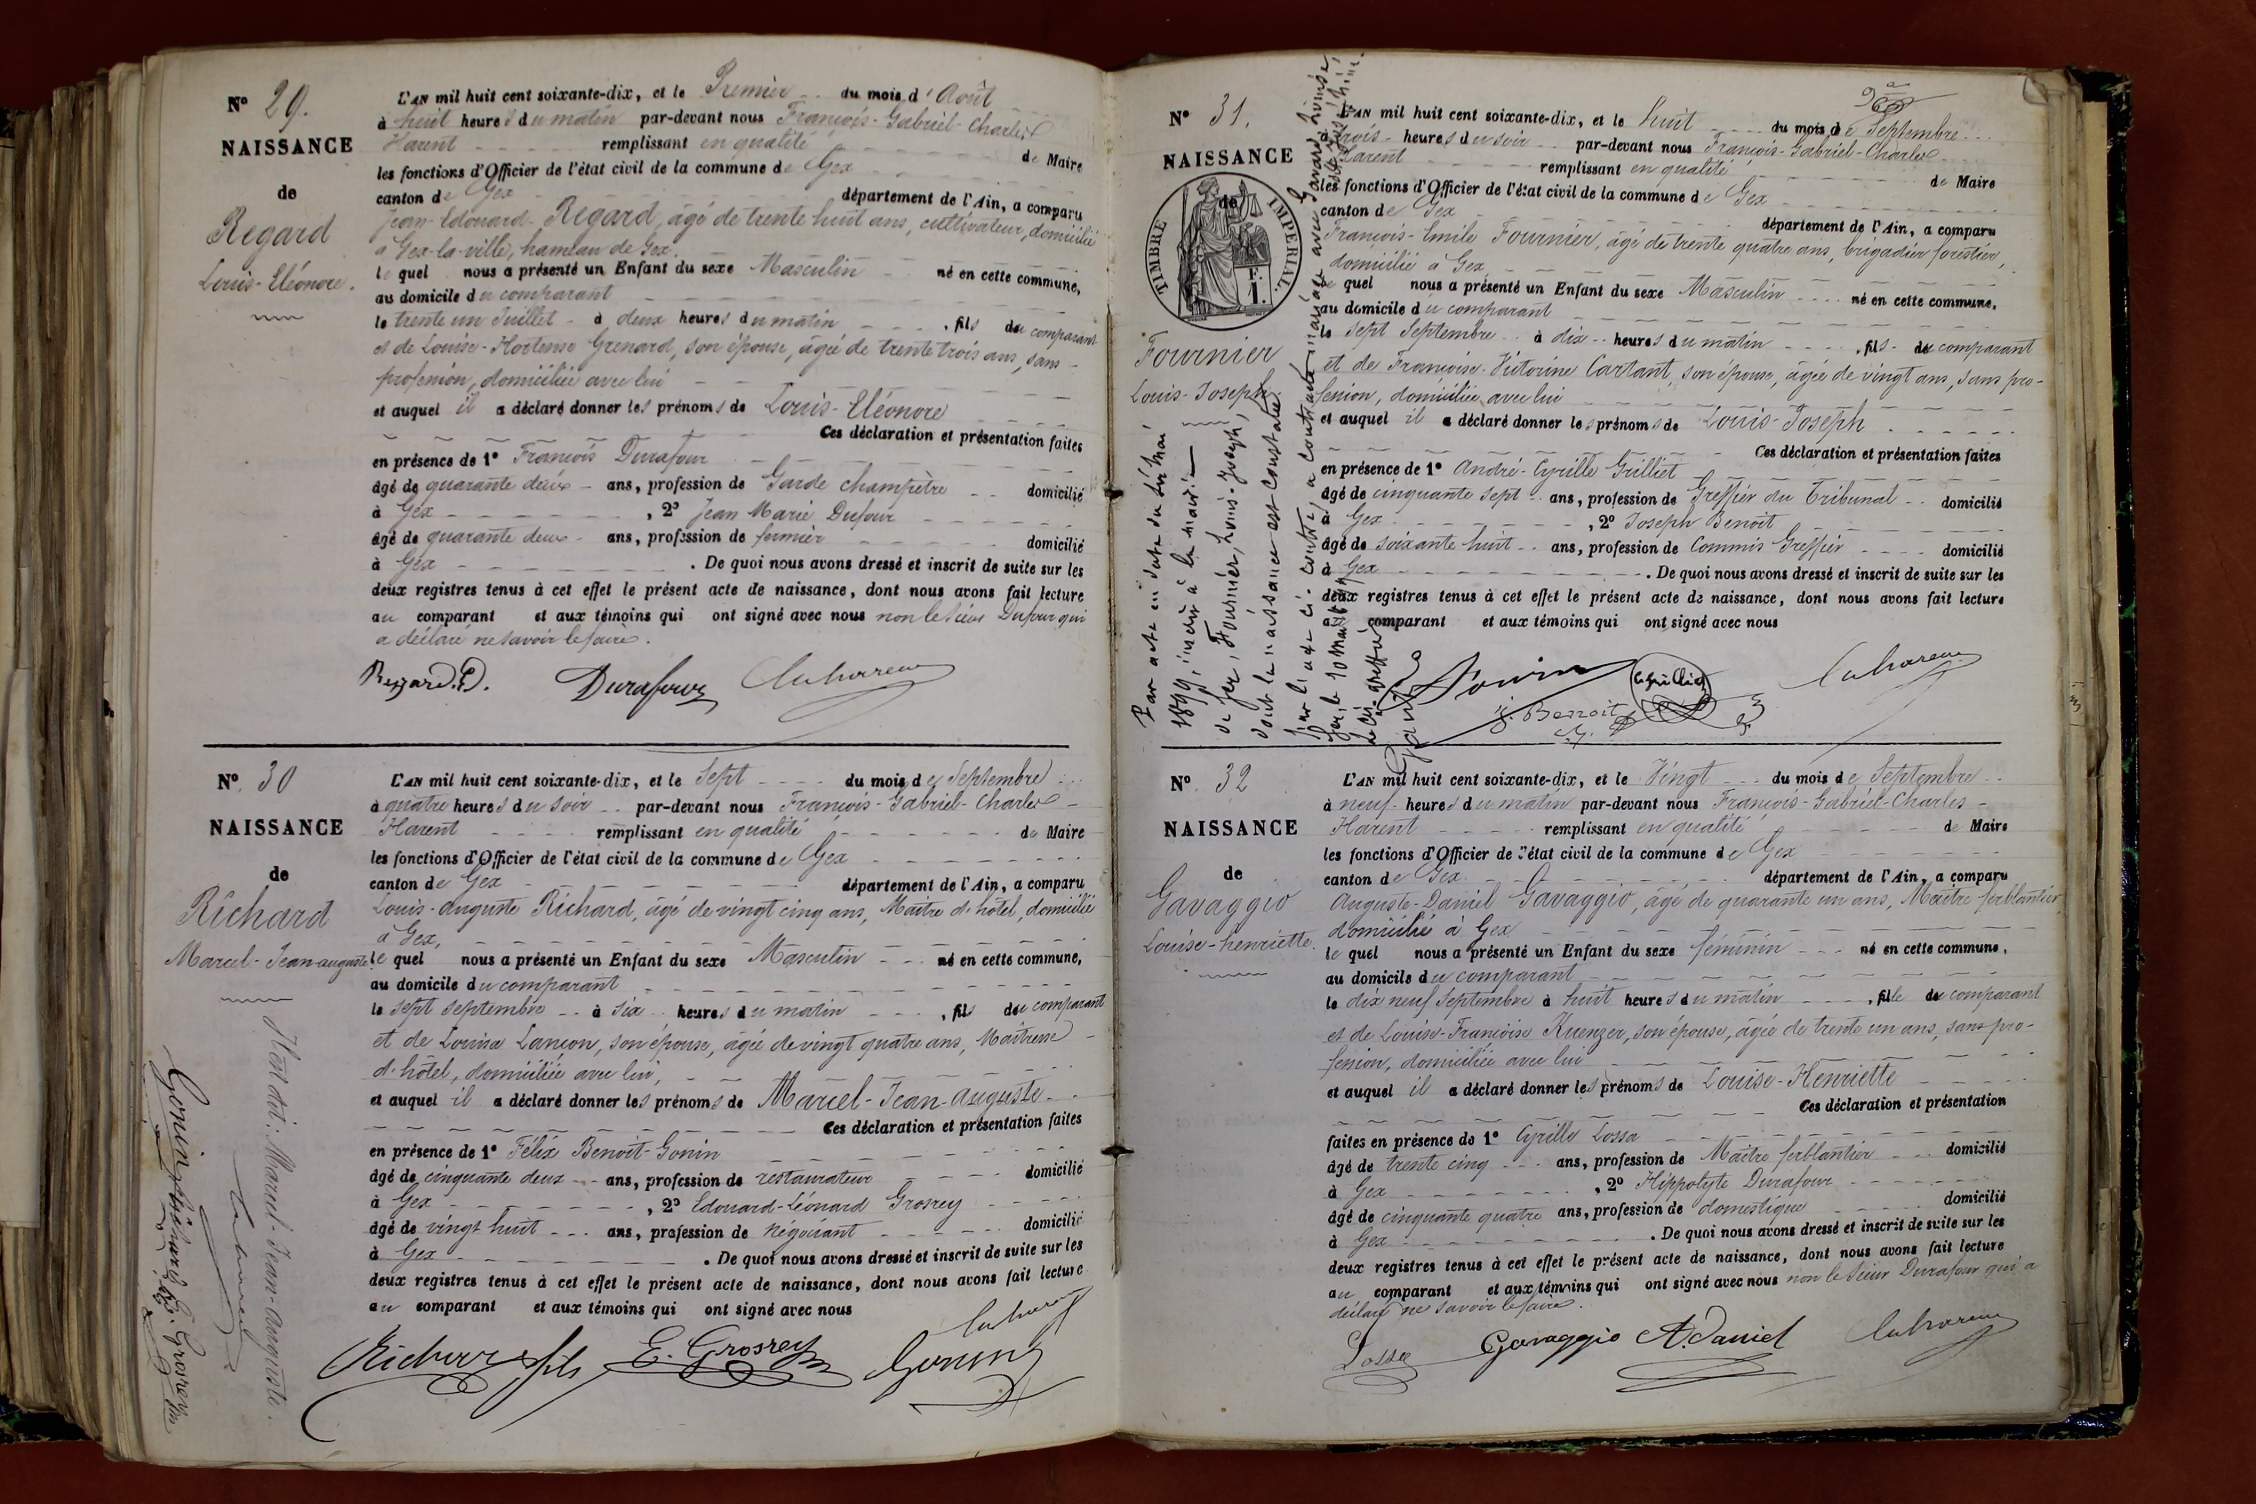 N° 29.
NAISSANCE
de
Regard
Louis-Eléonore.
L'AN mil huit cent soixante-dix, et le Premier du mois d'Août
à huit heures du matin par-devant nous François-Gabriel-Charles
Harent remplissant en qualité de Maire
les fonctions d'Officier de l'état civil de la commune de Gex
canton de Gex département de l'Ain, a comparu
Jean-Edouard Regard, âgé de trente huit ans, cultivateur, domicilié
à Gex-la-ville, hameau de Gex.
le quel nous a présenté un Enfant du sexe Masculin né en cette commune,
au domicile du comparant
le trente un Juillet à deux heures du matin, fils du comparant
et de Louise-Hortense Grenard, son épouse, âgée de trente trois ans, sans
profession, domiciliée avec lui
et auquel il a déclaré donner les prénoms de Louis-Eléonore
Ces déclaration et présentation faites
en présence de 1° François Durafour
âgé de quarante deux ans, profession de Garde champêtre domicilié
à Gex, 2° Jean Marie Dufour
âgé de quarante deux ans, profession de fermier domicilié
à Gex. De quoi nous avons dressé et inscrit de suite sur les
deux registres tenus à cet effet le présent acte de naissance, dont nous avons fait lecture
au comparant et aux témoins qui ont signé avec nous non le sieur Dufour qui
a déclaré ne savoir le faire.
Durafour
N° 30
NAISSANCE
de
Richard
Marcel-Jean-auguste
L'AN mil huit cent soixante-dix, et le Sept du mois de Septembre
à quatre heures du soir par-devant nous François-Gabriel-Charles
Harent remplissant en qualité de Maire
les fonctions d'Officier de l'état civil de la commune de Gex
canton de Gex département de l'Ain, a comparu
Louis-auguste Richard, âgé de vingt cinq ans, Maître d'hôtel, domicilié
à Gex,
le quel nous a présenté un Enfant du sexe Masculin né en cette commune,
au domicile du comparant
le sept septembre à six heures du matin, fils du comparant
et de Louisa Lançon, son épouse, âgée de vingt quatre ans, Maîtresse
d'hôtel, domiciliée avec lui,
et auquel il a déclaré donner les prénoms de Marcel-Jean-auguste
Ces déclaration et présentation faites
en présence de 1° Félix Benoit-Gonin
âgé de cinquante deux ans, profession de restaurateur domicilié
à Gex, 2° Edouard-Léonard Grosrey
âgé de vingt huit ans, profession de Négociant domicilié
à Gex. De quoi nous avons dressé et inscrit de suite sur les
deux registres tenus à cet effet le présent acte de naissance, dont nous avons fait lecture
au comparant et aux témoins qui ont signé avec nous
Richard fils E. Grosrey Gonin
Marcel-Jean-Auguste.
Gonin Richard fils E. Grosrey
N° 31.
NAISSANCE
de
TIMBRE IMPERIAL.
Fournier
Louis-Joseph
L'AN mil huit cent soixante-dix, et le huit du mois de Septembre
à trois heures du soir par-devant nous François-Gabriel-Charles
Harent remplissant en qualité de Maire
les fonctions d'Officier de l'état civil de la commune de Gex
canton de Gex département de l'Ain, a comparu
François-Emile Fournier, âgé de trente quatre ans, brigadier forestier,
domicilié à Gex
le quel nous a présenté un Enfant du sexe Masculin né en cette commune,
au domicile du comparant
le sept Septembre à dix heures du matin, fils du comparant
et de Françoise-Victorine Cartant, son épouse, âgée de vingt ans, sans pro-
fession, domiciliée avec lui
et auquel il a déclaré donner les prénoms de Louis-Joseph
Ces déclaration et présentation faites
en présence de 1° André-Cyrille Grilliet
âgé de cinquante sept ans, profession de Greffier du Tribunal domicilié
à Gex, 2° Joseph Benoit
âgé de soixante huit ans, profession de Commis Greffier domicilié
à Gex. De quoi nous avons dressé et inscrit de suite sur les
deux registres tenus à cet effet le présent acte de naissance, dont nous avons fait lecture
au comparant et aux témoins qui ont signé avec nous
J. Benoit
Par acte en date du dix Mai
1899, inscrit à la mairie
de Gex, Fournier, Louis-Joseph,
dont la naissance est constatée
par l'acte ci-contre, a contracté mariage avec
Gex, le 10 mai 1899
N° 32
NAISSANCE
de
Gavaggio
Louise-henriette.
L'AN mil huit cent soixante-dix, et le Vingt du mois de Septembre
à neuf heures du matin par-devant nous François-Gabriel-Charles
Harent remplissant en qualité de Maire
les fonctions d'Officier de l'état civil de la commune de Gex
canton de Gex département de l'Ain, a comparu
Auguste-Daniel Gavaggio, âgé de quarante un ans, Maître ferblantier,
domicilié à Gex
le quel nous a présenté un Enfant du sexe féminin né en cette commune,
au domicile du comparant
le dix neuf Septembre à huit heures du matin, fille du comparant
et de Louise-Françoise Kuenzer, son épouse, âgée de trente un ans, sans pro-
fession, domiciliée avec lui
et auquel il a déclaré donner les prénoms de Louise-Henriette
Ces déclaration et présentation
faites en présence de 1° Cyrille Lossa
âgé de trente cinq ans, profession de Maître ferblantier domicilié
à Gex, 2° Hippolyte Durafour
âgé de cinquante quatre ans, profession de domestique domicilié
à Gex. De quoi nous avons dressé et inscrit de suite sur les
deux registres tenus à cet effet le présent acte de naissance, dont nous avons fait lecture
au comparant et aux témoins qui ont signé avec nous non le Sieur Durafour qui a
déclaré ne savoir le faire.
Lossa Gavaggio A. Daniel